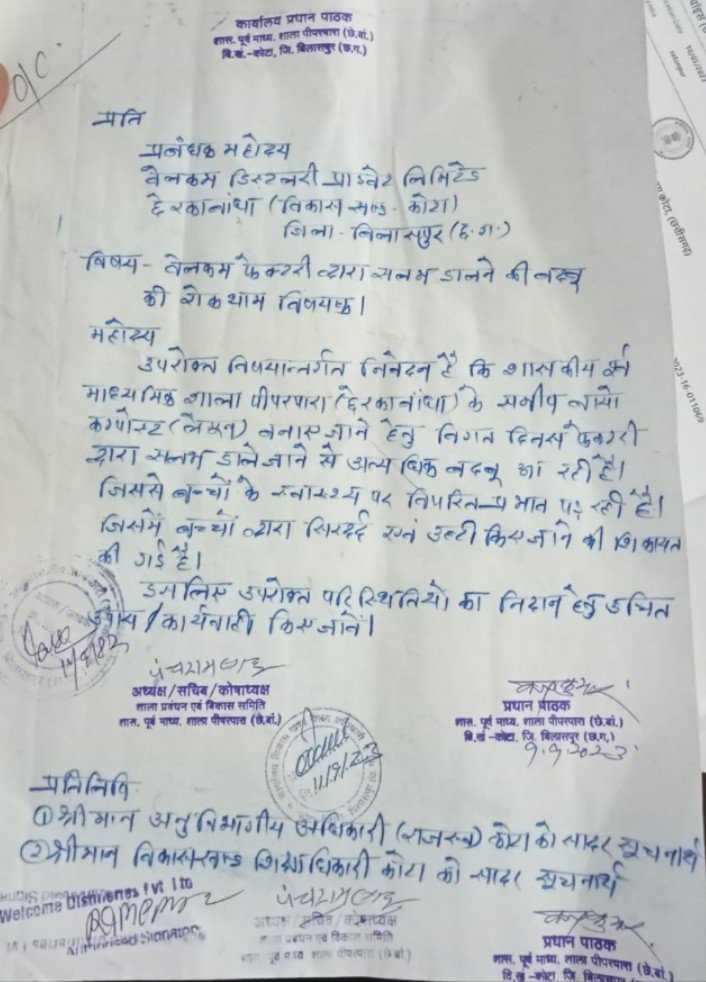 कार्यालय प्रधान पाठक
शास. पूर्व माध्य. शाला पीपरपारा (छे.बां.)
वि.खं.-कोटा, जि. बिलासपुर (छ.ग.)
O/C.
प्रति
प्रबंधक महोदय
वेलकम डिस्टलरी प्राइवेट लिमिटेड
छेरकाबांधा (विकास खण्ड - कोटा)
जिला - बिलासपुर (छ.ग.)
विषय - वेलकम फेक्टरी द्वारा मलम डालने की बदबू
की रोकथाम विषयक।
महोदय
उपरोक्त विषयान्तर्गत निवेदन है कि शासकीय पूर्व
माध्यमिक शाला पीपरपारा (छेरकाबांधा) के समीप बायो
कम्पोस्ट (लैगून) बनाए जाने हेतु विगत दिवस फेक्टरी
द्वारा मलम डाले जाने से अत्यधिक बदबू आ रही है।
जिससे बच्चों के स्वास्थ्य पर विपरित प्रभाव पड़ रही है।
जिसमें बच्चों द्वारा सिरदर्द एवं उल्टी किए जाने की शिकायत
की गई है।
इसलिए उपरोक्त परिस्थितियों का निदान हेतु उचित
उपाय / कार्यवाही किए जावें।
अध्यक्ष/सचिव/कोषाध्यक्ष
शाला प्रबंधन एवं विकास समिति
शास. पूर्व माध्य. शाला पीपरपारा (छे.बां.)
प्रधान पाठक
शास. पूर्व माध्य. शाला पीपरपारा (छे.बां.)
वि.खं -कोटा, जि. बिलासपुर (छ.ग.)
9.9.2023
11/9/23
प्रतिलिपि
① श्रीमान अनुविभागीय अधिकारी (राजस्व) कोटा को सादर सूचनार्थ
② श्रीमान विकासखण्ड शिक्षाधिकारी कोटा को सादर सूचनार्थ
Welcome Distilleries Pvt Ltd
Authorised Signatory
अध्यक्ष/सचिव/कोषाध्यक्ष
शाला प्रबंधन एवं विकास समिति
शास. पूर्व माध्य. शाला पीपरपारा (छे.बां.)
प्रधान पाठक
शास. पूर्व माध्य. शाला पीपरपारा (छे.बां.)
वि.खं -कोटा, जि. बिलासपुर
10/05/2023
कोटा, (छत्तीसगढ़)
2023-16-011069